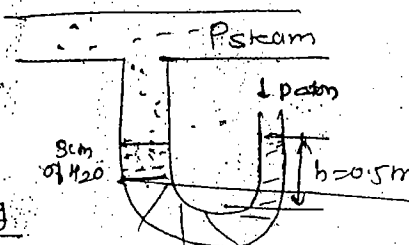 Psteam
↓ patm
3cm
of H20
h=0.5m